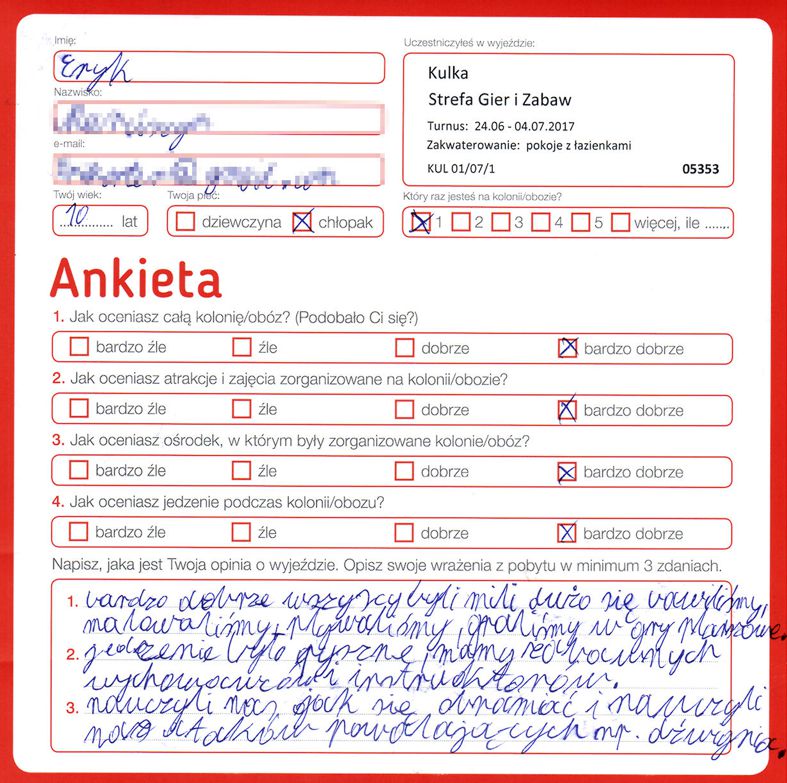 Imię:
Eryk
Nazwisko:
e-mail:
Twój wiek:
10 lat
Twoja płeć:
dziewczyna chłopak
Uczestniczyłeś w wyjeździe:
Kulka
Strefa Gier i Zabaw
Turnus: 24.06 - 04.07.2017
Zakwaterowanie: pokoje z łazienkami
KUL 01/07/1 05353
Który raz jesteś na kolonii/obozie?
1 2 3 4 5 więcej, ile .......
Ankieta
1. Jak oceniasz całą kolonię/obóz? (Podobało Ci się?)
bardzo źle źle dobrze bardzo dobrze
2. Jak oceniasz atrakcje i zajęcia zorganizowane na kolonii/obozie?
bardzo źle źle dobrze bardzo dobrze
3. Jak oceniasz ośrodek, w którym były zorganizowane kolonie/obóz?
bardzo źle źle dobrze bardzo dobrze
4. Jak oceniasz jedzenie podczas kolonii/obozu?
bardzo źle źle dobrze bardzo dobrze
Napisz, jaka jest Twoja opinia o wyjeździe. Opisz swoje wrażenia z pobytu w minimum 3 zdaniach.
1. bardzo dobrze wszyscy byli mili dużo się bawiliśmy,
malowaliśmy, pływaliśmy, graliśmy w gry planszowe.
2. jedzenie było pyszne, mamy
wychowawców i instruktorów.
3. nauczyli nas jak się i nauczyli
nas ataków powalających np. dźwignia.